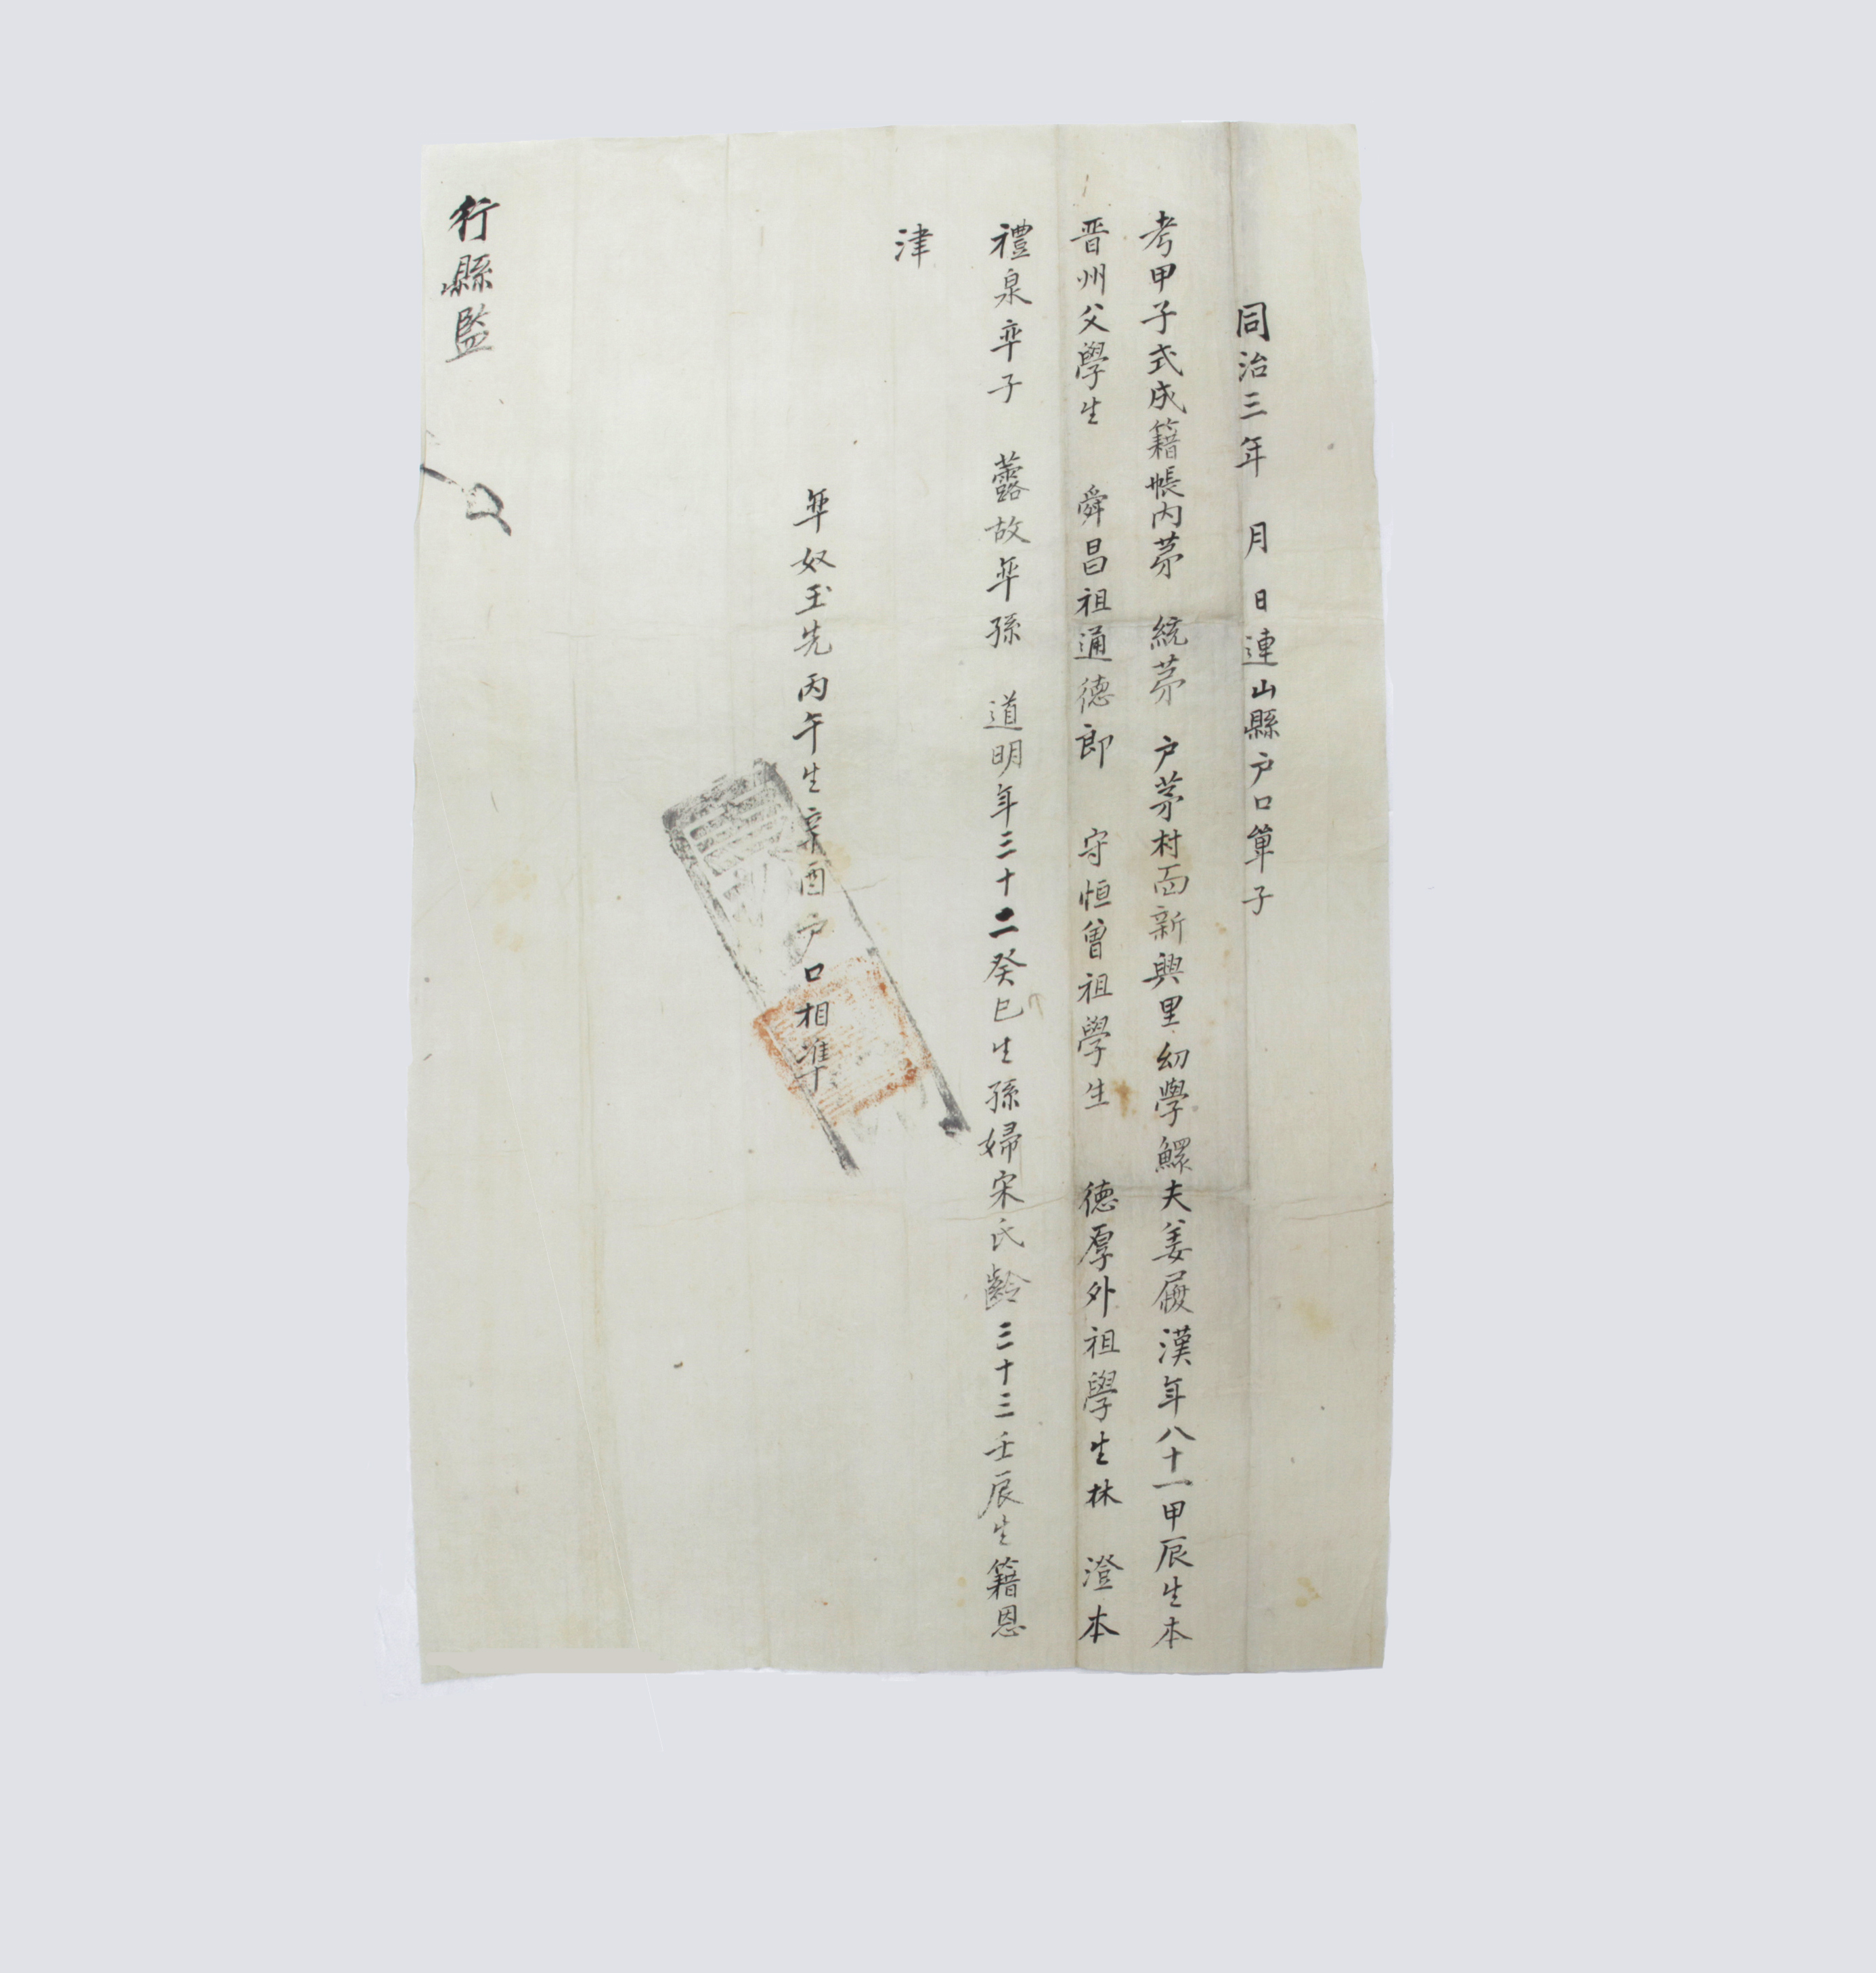 同治三年 月 日連山縣戶口單子
考甲子式成籍帳內苐 統苐 户苐村面新興里幼學鰥夫姜履漢年八十一甲辰生本
晋州父學生 舜昌祖通德郎 守恒曾祖學生 德厚外祖學生林 澄本
禮泉率子 虂故率孫 道明年三十二癸巳生孫婦宋氏齡三十三壬辰生籍恩
津
率奴玉先丙午生辛酉户口相準
行縣監